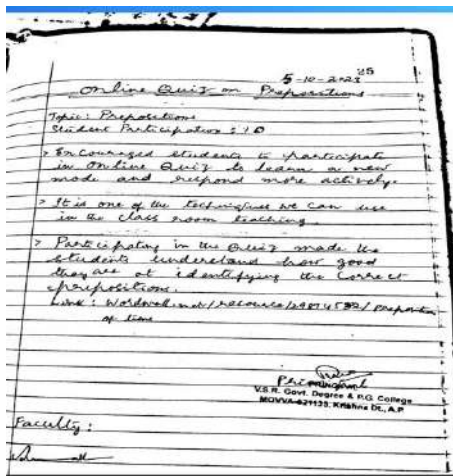 25
5-10-2023
Online Quiz on Prepositions
Topic: Prepositions
Student Participation: 10
> Encouraged students to participate
in Online Quiz to learn a new
mode and respond more actively.
> It is one of the techniques we can use
in the class room teaching.
> Participating in the Quiz made the
students understand how good
they are at identifying the correct
prepositions.
Link: Wordwall.net/resource/ / preposition
of time
V.S.R. Govt. Degree & P.G. College
MOVVA-521135, Krishna Dt., A.P
Faculty: